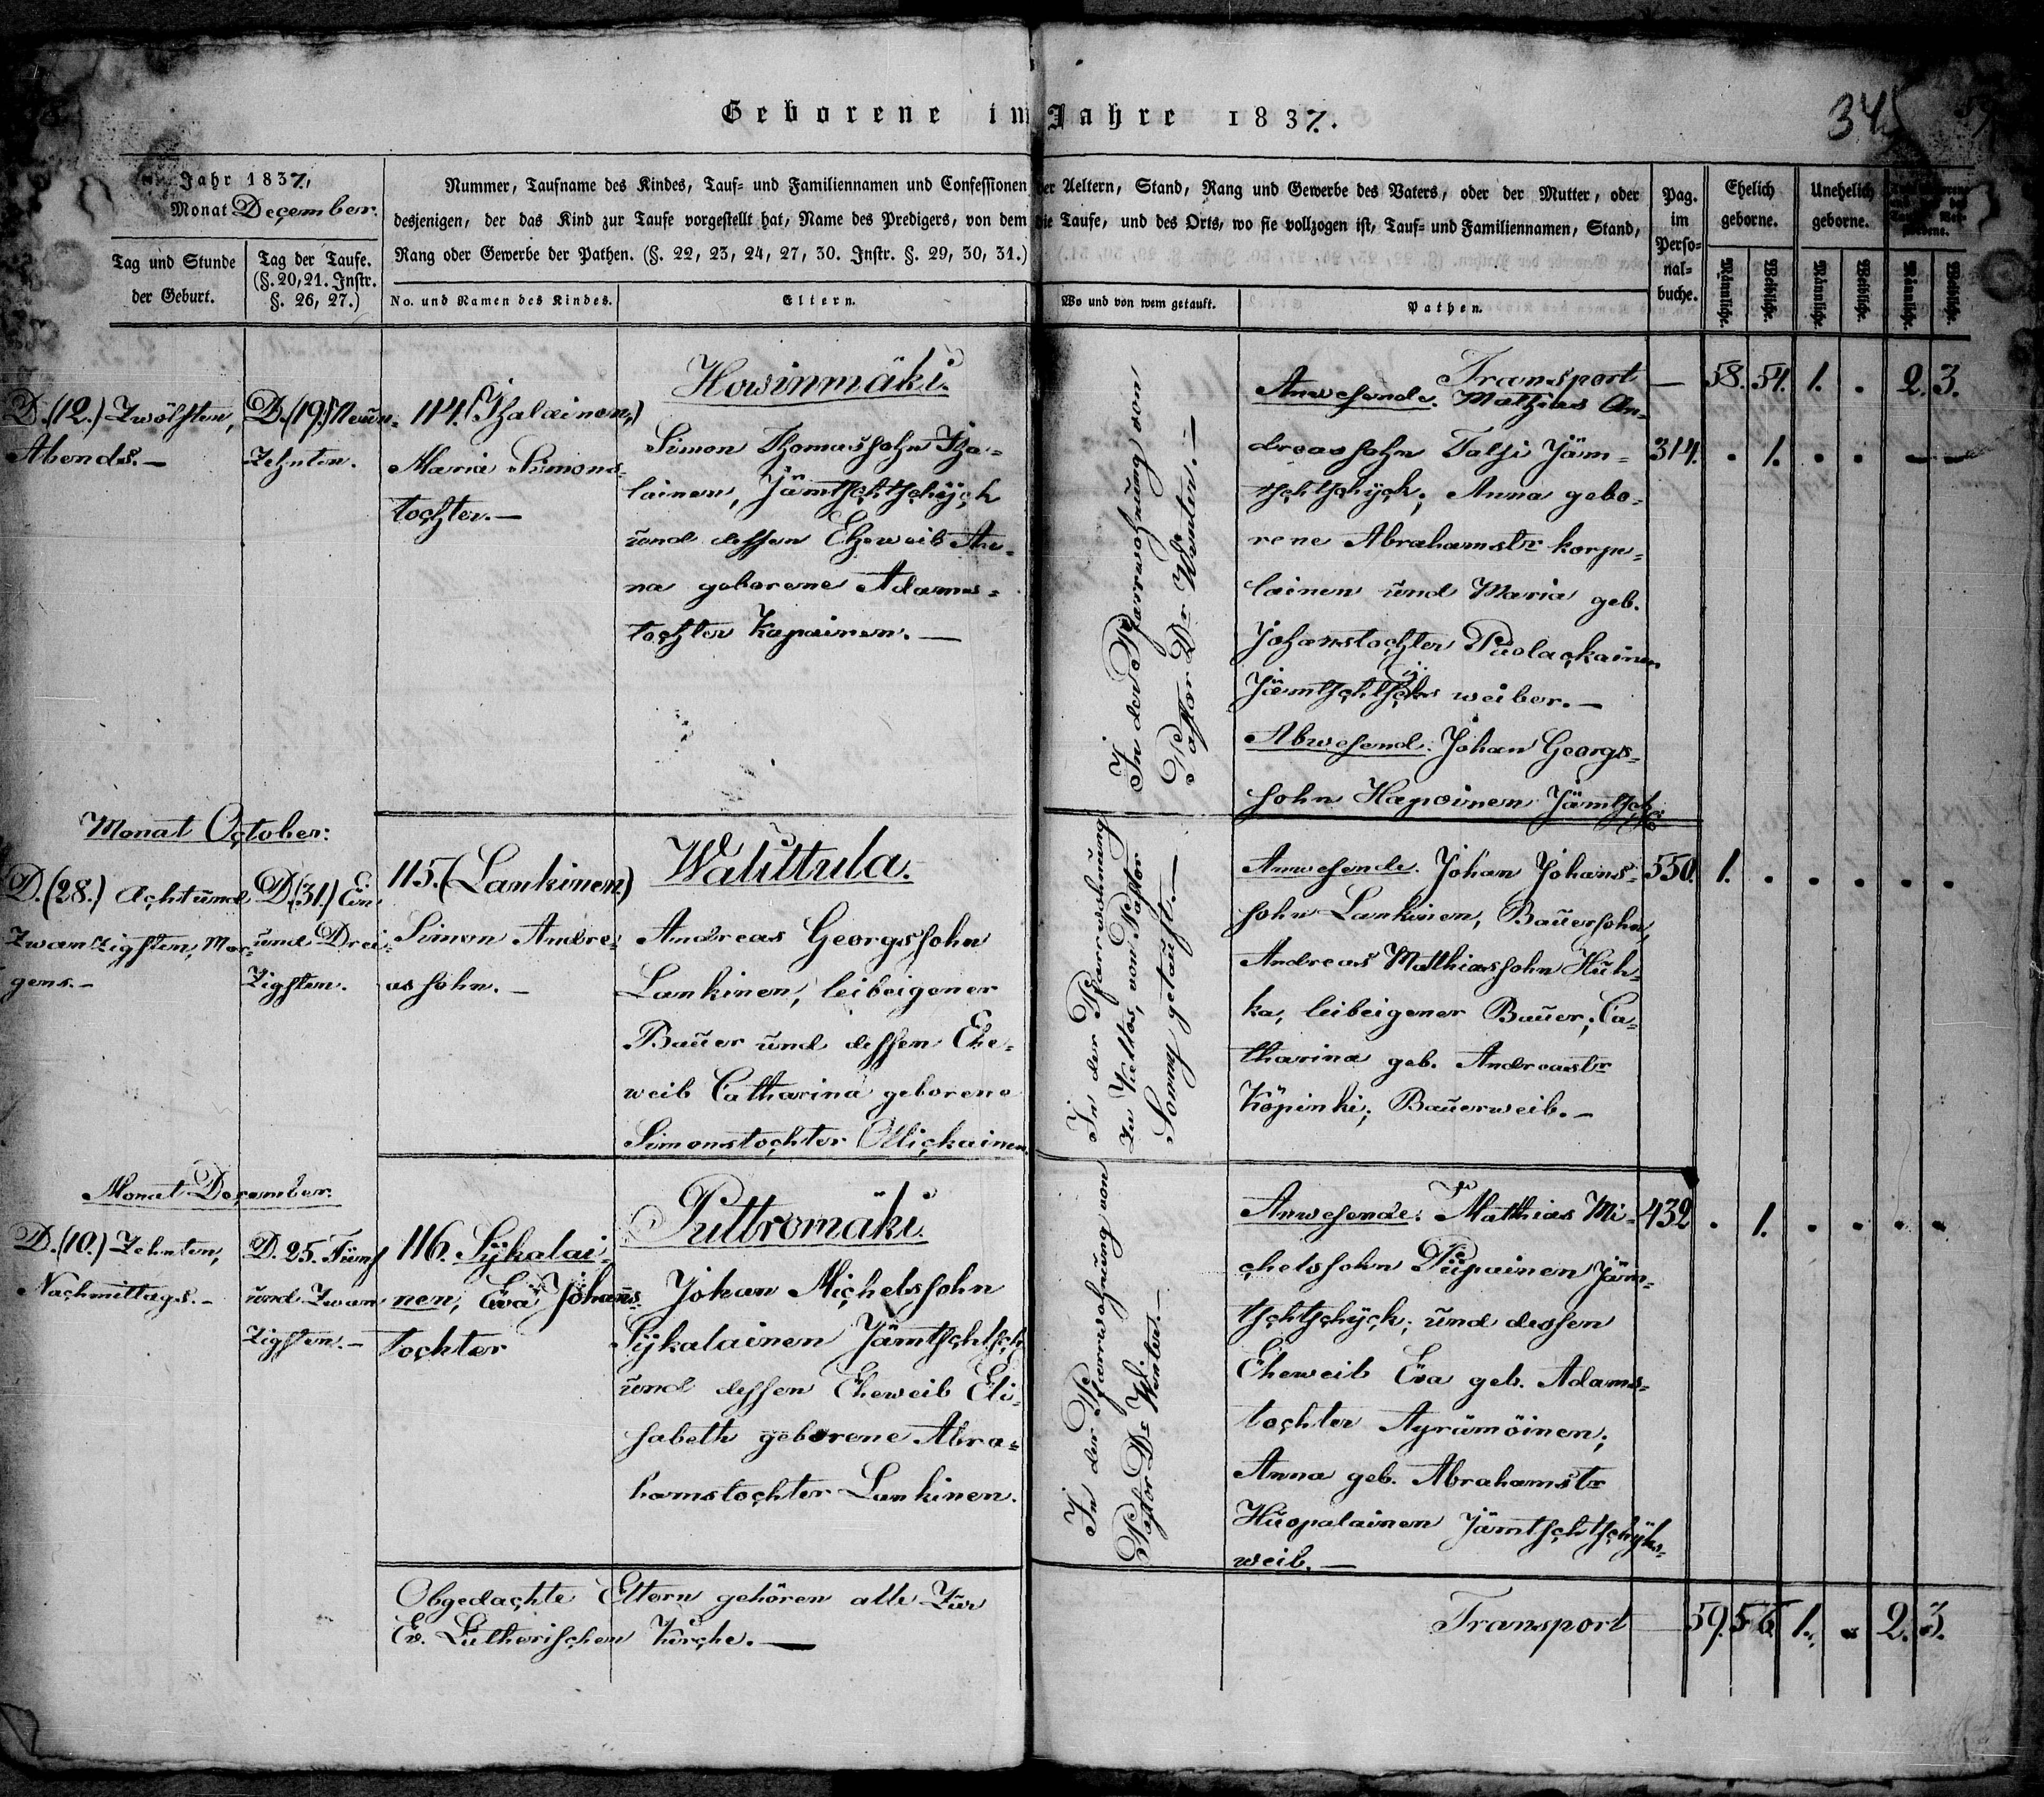 Geborene im Jahre 1837.
345
Jahr 1837,
Monat December.
Tag und Stunde
der Geburt.
Tag der Taufe.
(§. 20, 21. Instr.
§. 26, 27.)
Nummer, Taufname des Kindes, Tauf- und Familiennamen und Confessionen der Aeltern, Stand, Rang und Gewerbe des Vaters, oder der Mutter, oder
desjenigen, der das Kind zur Taufe vorgestellt hat, Name des Predigers, von dem die Taufe, und des Orts, wo sie vollzogen ist, Tauf- und Familiennamen, Stand,
Rang oder Gewerbe der Pathen. (§. 22, 23, 24, 27, 30. Instr. §. 29, 30, 31.)
No. und Namen des Kindes.
Eltern.
Wo und von wem getauft.
Pathen.
Pag.
im
Perso-
nal-
buche.
Ehelich
geborne.
Unehelich
geborne.
Männliche.
Weibliche.
Männliche.
Weibliche.
Männliche.
Weibliche.
Transport — 58. 54. 1. . 2. 3.
D. (12.) Zwölften,
Abends. —
D. (19.) Neun-
zehnten.
114. (Ihalainen,)
Maria Simons-
tochter. —
Howinmäki.
Simon Thomassohn Iha-
lainen, Jämtschtschijck
und dessen Eheweib An-
na geborene Adams-
tochter Kapainen. —
In der Pfarrwohnung von
Pastor Dr Winter. —
Anwesende. Mathias An-
dreassohn Talsi Jäm-
tschtschijck; Anna gebo-
rene Abrahamstr korpe-
lainen und Maria geb.
Johanstochter Puolackainen
Jämtschtschijks weiber. —
Abwesend. Johan Georgs-
sohn Hapoinen Jämtsch
314. . 1. . . — —
Monat October:
D. (28.) Achtund
zwanzigsten, Mor-
gens. —
D. (31.) Ein
und Drei-
zigsten.
115. (Lankinen)
Simon Andre-
assohn. —
Walittula.
Andreas Georgssohn
Lankinen, leibeigener
Bauer und dessen Ehe-
weib Catharina geborene
Simonstochter Ollickainen.
In der Pfarrwohnung
von Pastor
getauft. —
Anwesende. Johan Johans-
sohn Lankinen, Bauersohn,
Andreas Matthiassohn Huh-
ka, leibeigener Bauer; Ca-
tharina geb. Andreastr
Köpinki; Bauerweib. —
550. 1. . . . . .
Monat December.
D. (10.) Zehnten,
Nachmittags. —
D. 25. Fünf
und Zwan
zigsten. —
116. Sijkalai-
nen, Eva Johans-
tochter
Puttromäki.
Johan Michelssohn
Sijkalainen Jämtschtsch
und dessen Eheweib Eli-
sabeth geborene Abra-
hamstochter Lankinen.
In der Pfarrwohnung von
Pastor Dr Winter. —
Anwesende. Matthias Mi-
chelssohn Piipainen Jäm-
tschtschijck; und dessen
Eheweib Eva geb. Adams-
tochter Ayrämöinen;
Anna geb. Abrahamstr
Huopalainen Jämtschtschijks-
weib. —
432 . 1. . . . .
Obgedachte Eltern gehören alle zur
Ev. Lutherischen Kirche. —
Transport — 59. 56. 1. . 2. 3.